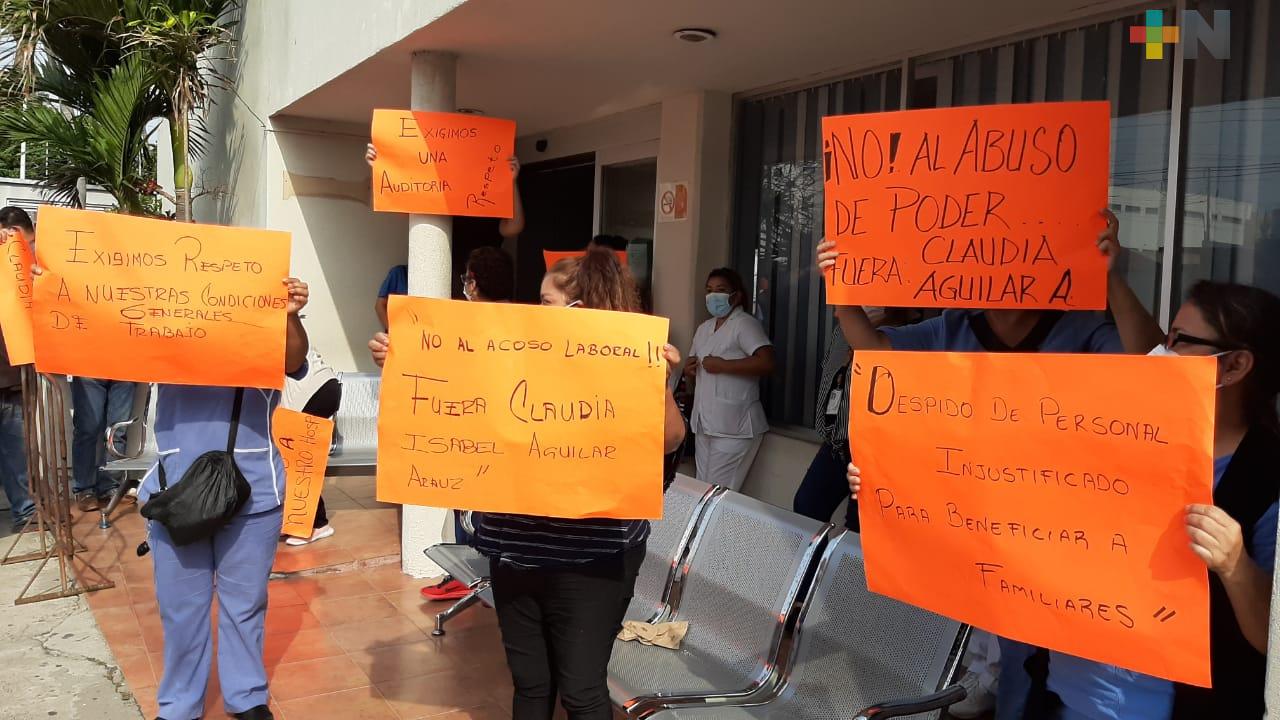 +N
EXIGIMOS
UNA
AUDITORIA
RESPETO
¡NO! AL ABUSO
DE PODER....
FUERA: CLAUDIA
AGUILAR A.
EXIGIMOS RESPETO
A NUESTRAS CONDICIONES
GENERALES
DE TRABAJO
"NO AL ACOSO LABORAL!!
FUERA CLAUDIA
ISABEL AGUILAR
ARAUZ"
"DESPIDO DE PERSONAL
INJUSTIFICADO
PARA BENEFICIAR A
FAMILIARES"
NUESTRO HOSP